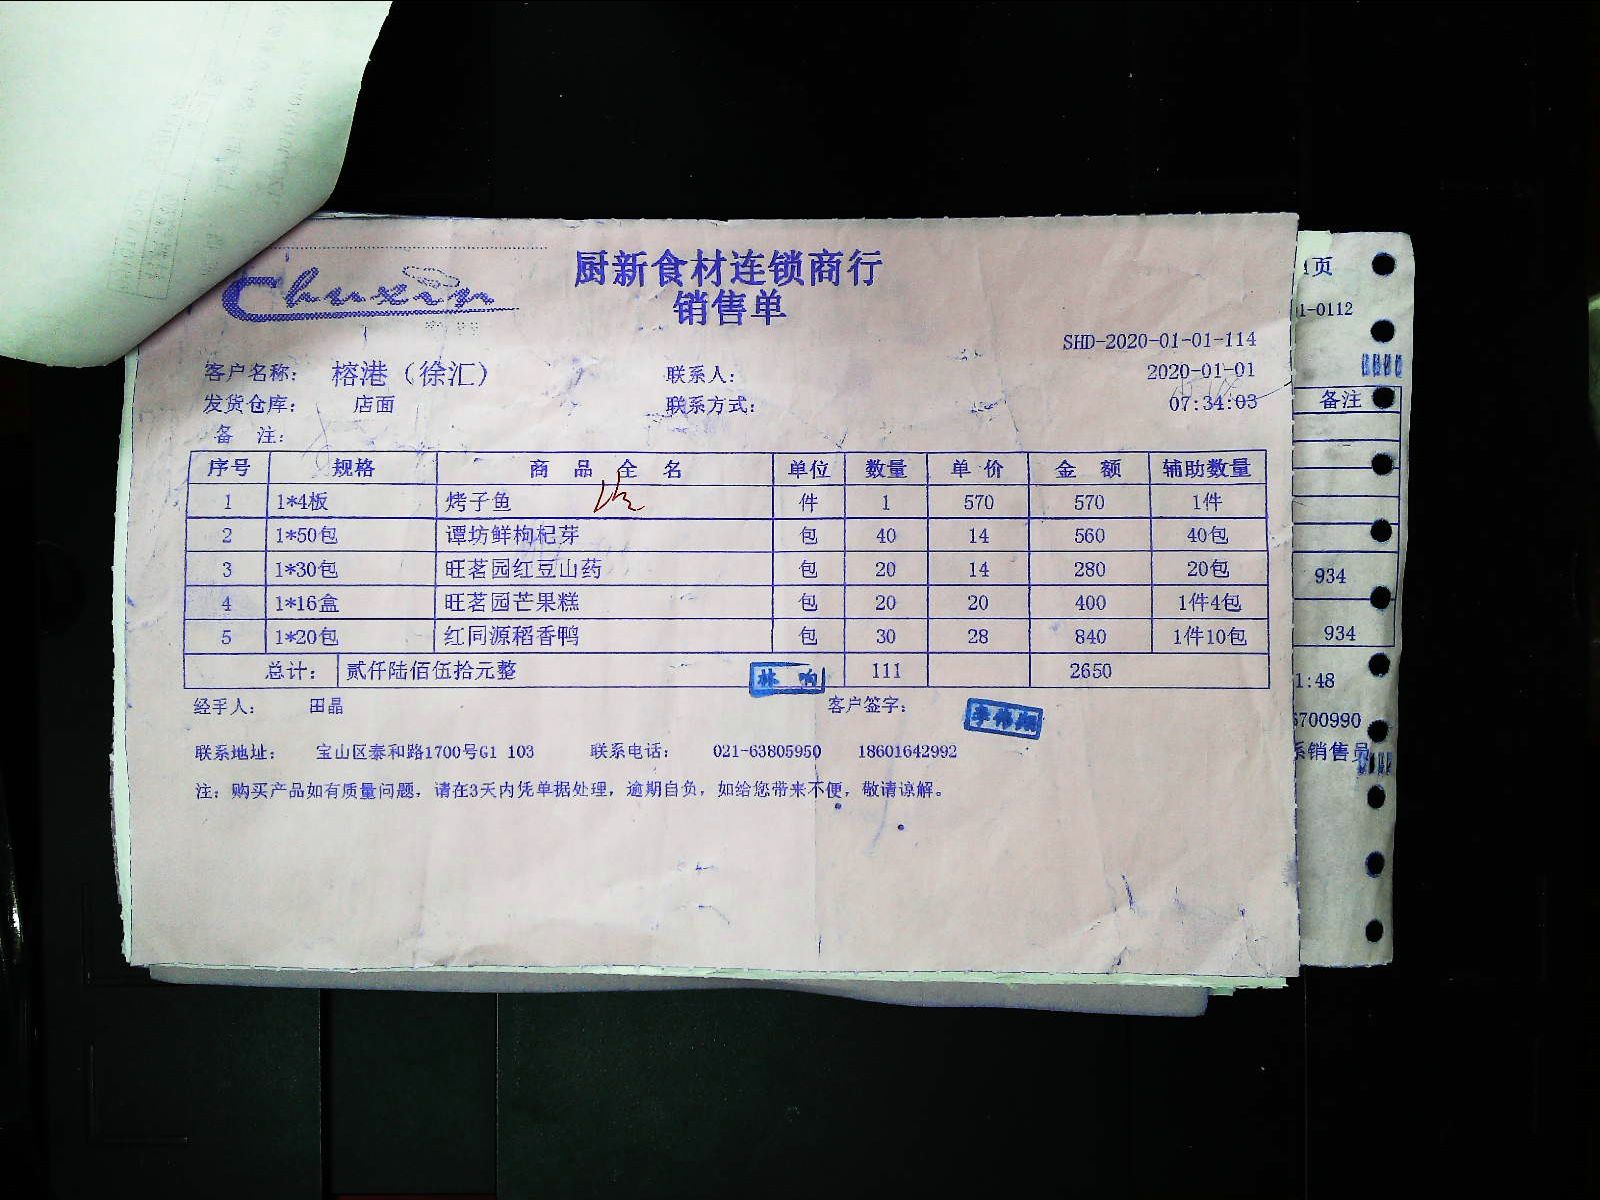 Chuxin
厨新食材连锁商行
销售单
SHD-2020-01-01-114
客户名称: 榕港（徐汇） 联系人: 2020-01-01
发货仓库: 店面 联系方式: 07:34:03
备 注:
序号 规格 商 品 全 名 单位 数量 单 价 金 额 辅助数量
1 1*4板 烤子鱼 件 1 570 570 1件
2 1*50包 谭坊鲜枸杞芽 包 40 14 560 40包
3 1*30包 旺茗园红豆山药 包 20 14 280 20包
4 1*16盒 旺茗园芒果糕 包 20 20 400 1件4包
5 1*20包 红同源稻香鸭 包 30 28 840 1件10包
总计: 贰仟陆佰伍拾元整 111 2650
林 响
经手人: 田晶 客户签字:
联系地址: 宝山区泰和路1700号G1 103 联系电话: 021-63805950 18601642992
注: 购买产品如有质量问题, 请在3天内凭单据处理, 逾期自负, 如给您带来不便, 敬请谅解。
页
1-0112
备注
934
934
1:48
700990
系销售员